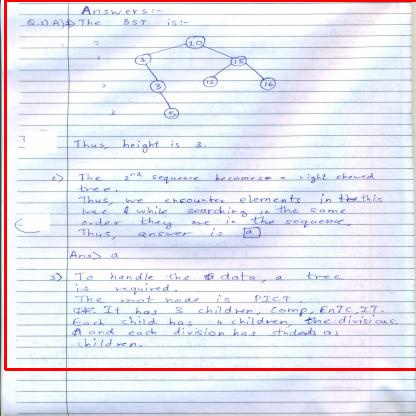 Answers:-
Q.1) A) 1) The BST is:-
0
10
1
1
15
2
3
12
16
3
5
Thus, height is 3.
2) The 2nd sequence becomes a right skewed
tree.
Thus, we encounter elements in this
tree while searching in the same
order they are in the sequence.
Thus, answer is a
Ans> a
3) To handle the data, a tree
is required.
The root node is PICT.
It has 3 children, Comp, EnTC, IT.
Each child has 4 children, the divisions
and each division has students as
children.